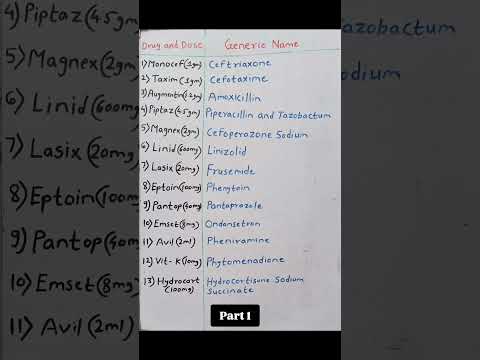 Drug and Dose Generic Name
1) Monocef (1gm) Ceftriaxone
2) Taxim (1gm) Cefotaxime
3) Augmentin (1.2gm) Amoxicillin
4) Piptaz (4.5gm) Piperacillin and Tazobactum
5) Magnex (2gm) Cefoperazone Sodium
6) Linid (600mg) Linizolid
7) Lasix (20mg) Frusemide
8) Eptoin (100mg) Phenytoin
9) Pantop (40mg) Pantoprazole
10) Emset (8mg) Ondansetron
11) Avil (2ml) Pheniramine
12) Vit-K (10mg) Phytomenadione
13) Hydrocort (100mg) Hydrocortisone Sodium
Succinate
Part 1
4) Piptaz (4.5gm)
5) Magnex (2gm)
6) Linid (600mg)
7) Lasix (20mg)
8) Eptoin (100mg)
9) Pantop (40mg)
10) Emset (8mg)
11) Avil (2ml)
Tazobactum
odium